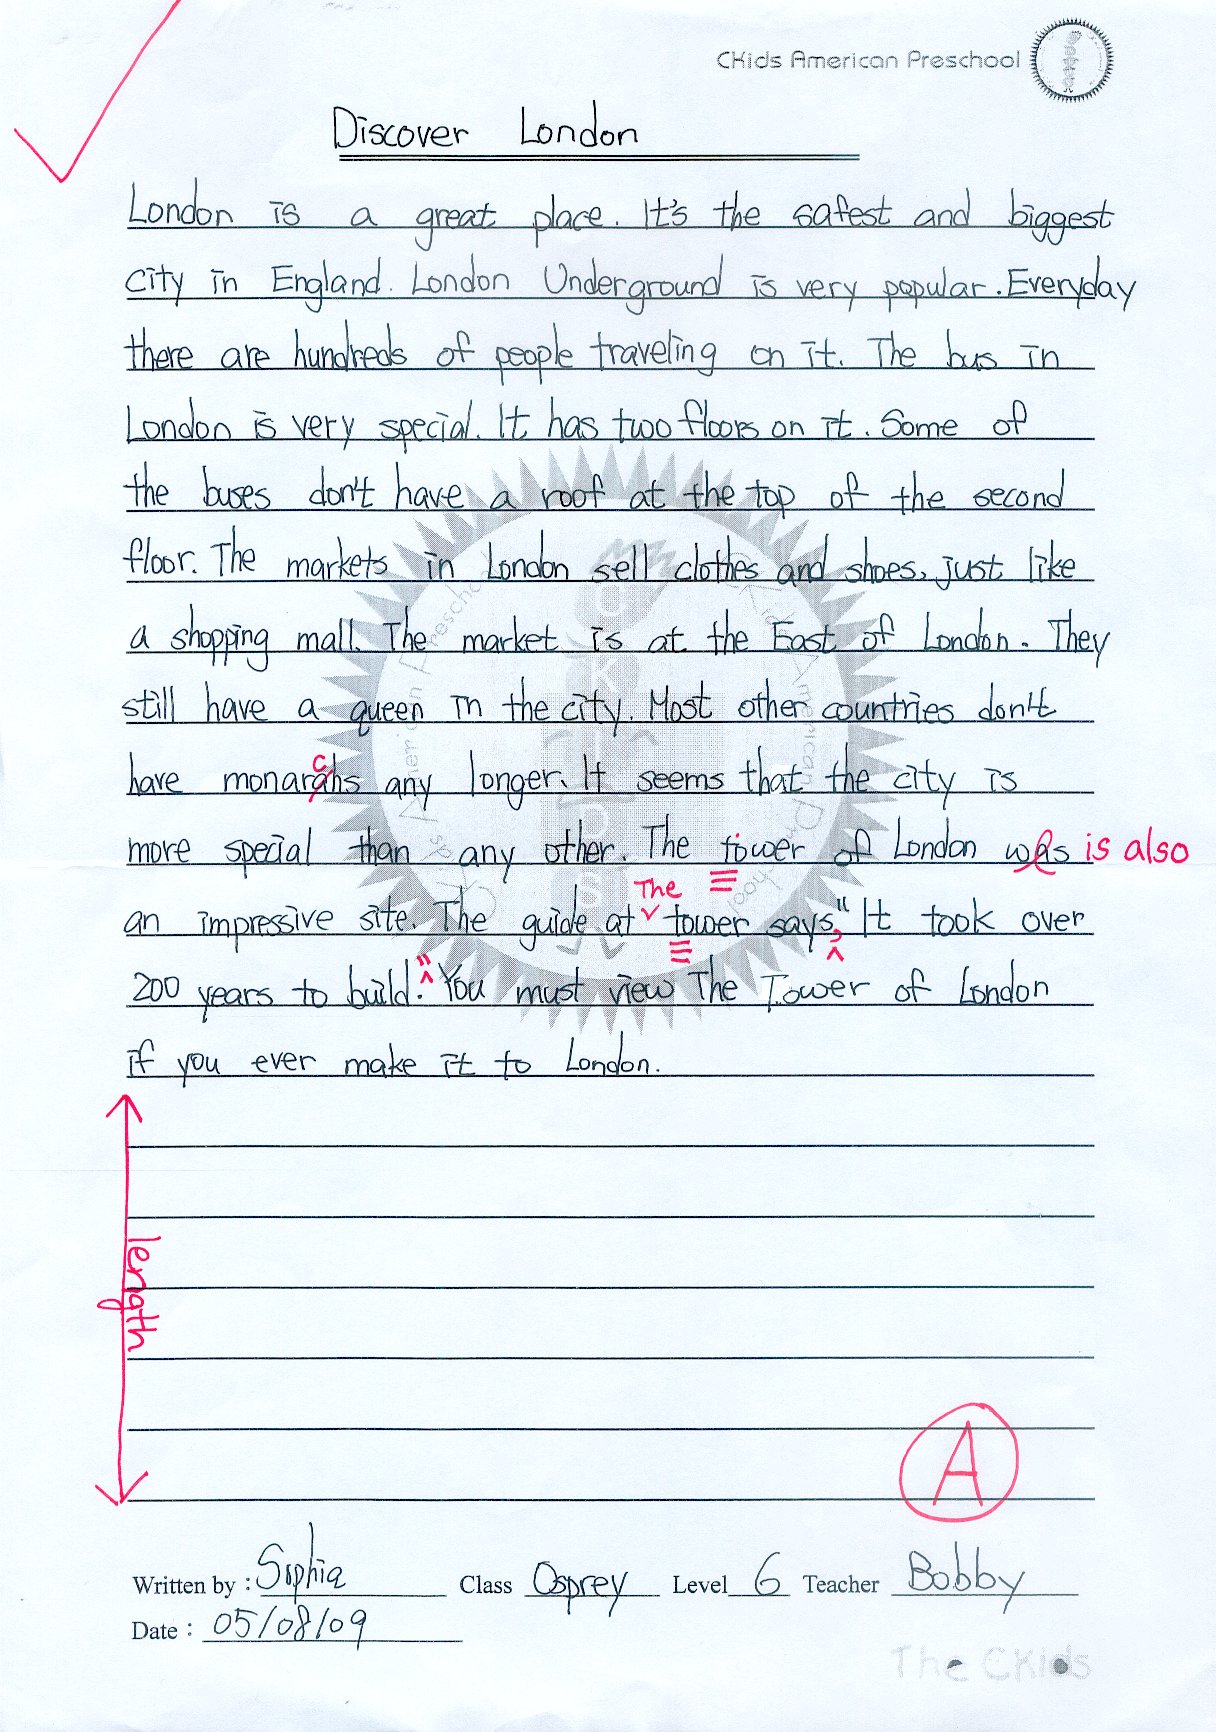 CKids American Preschool
Discover London
London is a great place. It's the safest and biggest
city in England. London Underground is very popular. Everyday
there are hundreds of people traveling on it. The bus in
London is very special. It has two floors on it. Some of
the buses don't have a roof at the top of the second
floor. The markets in London sell clothes and shoes, just like
a shopping mall. The market is at the East of London. They
still have a queen in the city. Most other countries don't
c
have monarahs any longer. It seems that the city is
more special than any other. The tower of London was is also
The
an impressive site. The guide at tower says," It took over
200 years to build." You must view The Tower of London
if you ever make it to London.
length
A
Written by : Sophia Class Osprey Level 6 Teacher Bobby
Date : 05/08/09
The CKids